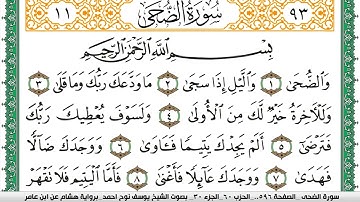 ١١ سُورَةُ الضُّحَىٰ ٩٣
بِسْمِ اللَّهِ الرَّحْمَٰنِ الرَّحِيمِ
وَالضُّحَىٰ ١ وَالَّيْلِ إِذَا سَجَىٰ ٢ مَا وَدَّعَكَ رَبُّكَ وَمَا قَلَىٰ ٣
وَلَلْأَخِرَةُ خَيْرٌ لَكَ مِنَ الْأُولَىٰ ٤ وَلَسَوْفَ يُعْطِيكَ رَبُّكَ
فَتَرْضَىٰ ٥ أَلَمْ يَجِدْكَ يَتِيمًا فَـَٔاوَىٰ ٦ وَوَجَدَكَ ضَآلًّا
فَهَدَىٰ ٧ وَوَجَدَكَ عَآئِلًا فَأَغْنَىٰ ٨ فَأَمَّا الْيَتِيمَ فَلَا تَقْهَرْ
سورة الضحى_ الصفحة ٥٩٦_ الحزب ٦٠_ الجزء ٣٠_ بصوت الشيخ يوسف نوح احمد_ برواية هشام عن ابن عامر